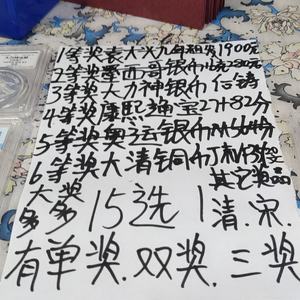 1等奖袁大头九年和身1900元
2等奖墨西哥银币280元
3等奖大力神银币后铸
4等奖康熙通宝27+82分
5等奖奥运银币MS64分
6等奖大清铜币
其它奖品
大奖多多15选1清.宋.
有单奖.双奖.三奖